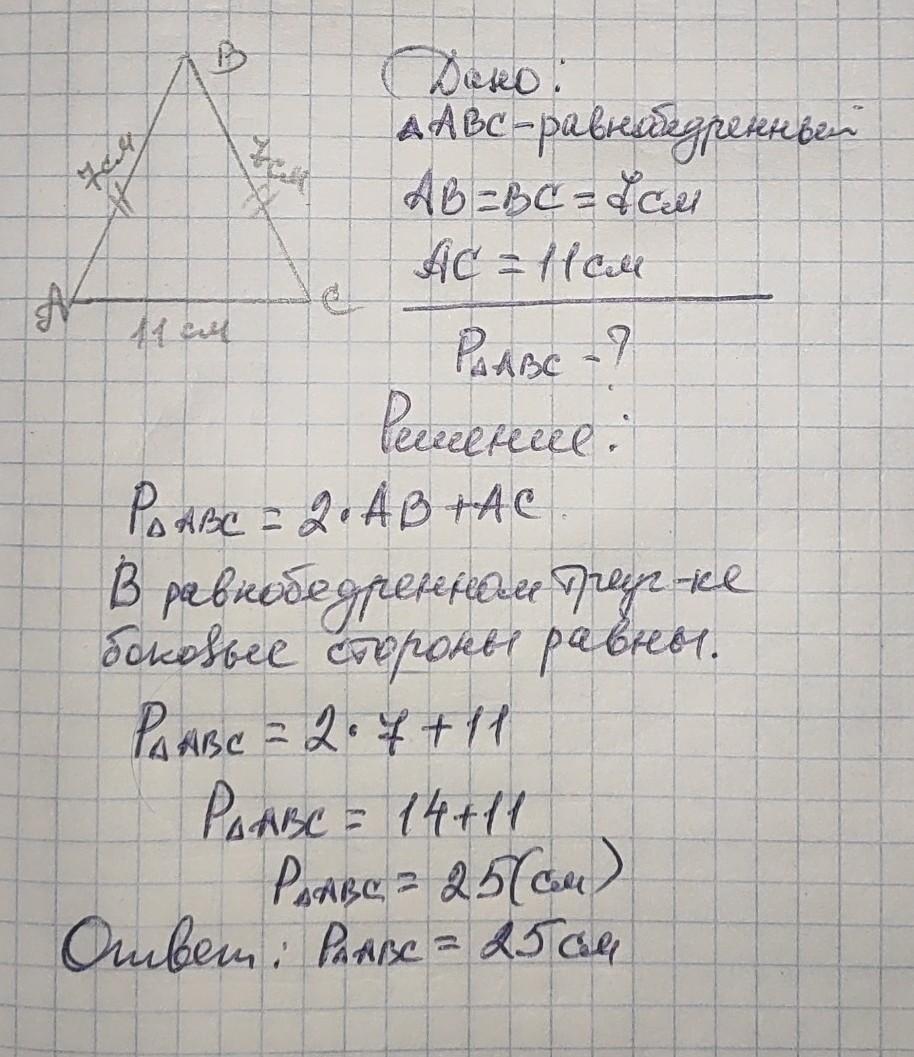 B
7см
7см
A
C
11 см
Дано:
△ABC-равнобедренный
AB=BC=7см
AC=11см
P△ABC-?
Решение:
P△ABC=2·AB+AC
В равнобедренном треуг-ке
боковые стороны равны.
P△ABC=2·7+11
P△ABC=14+11
P△ABC=25(см)
Ответ: P△ABC=25см